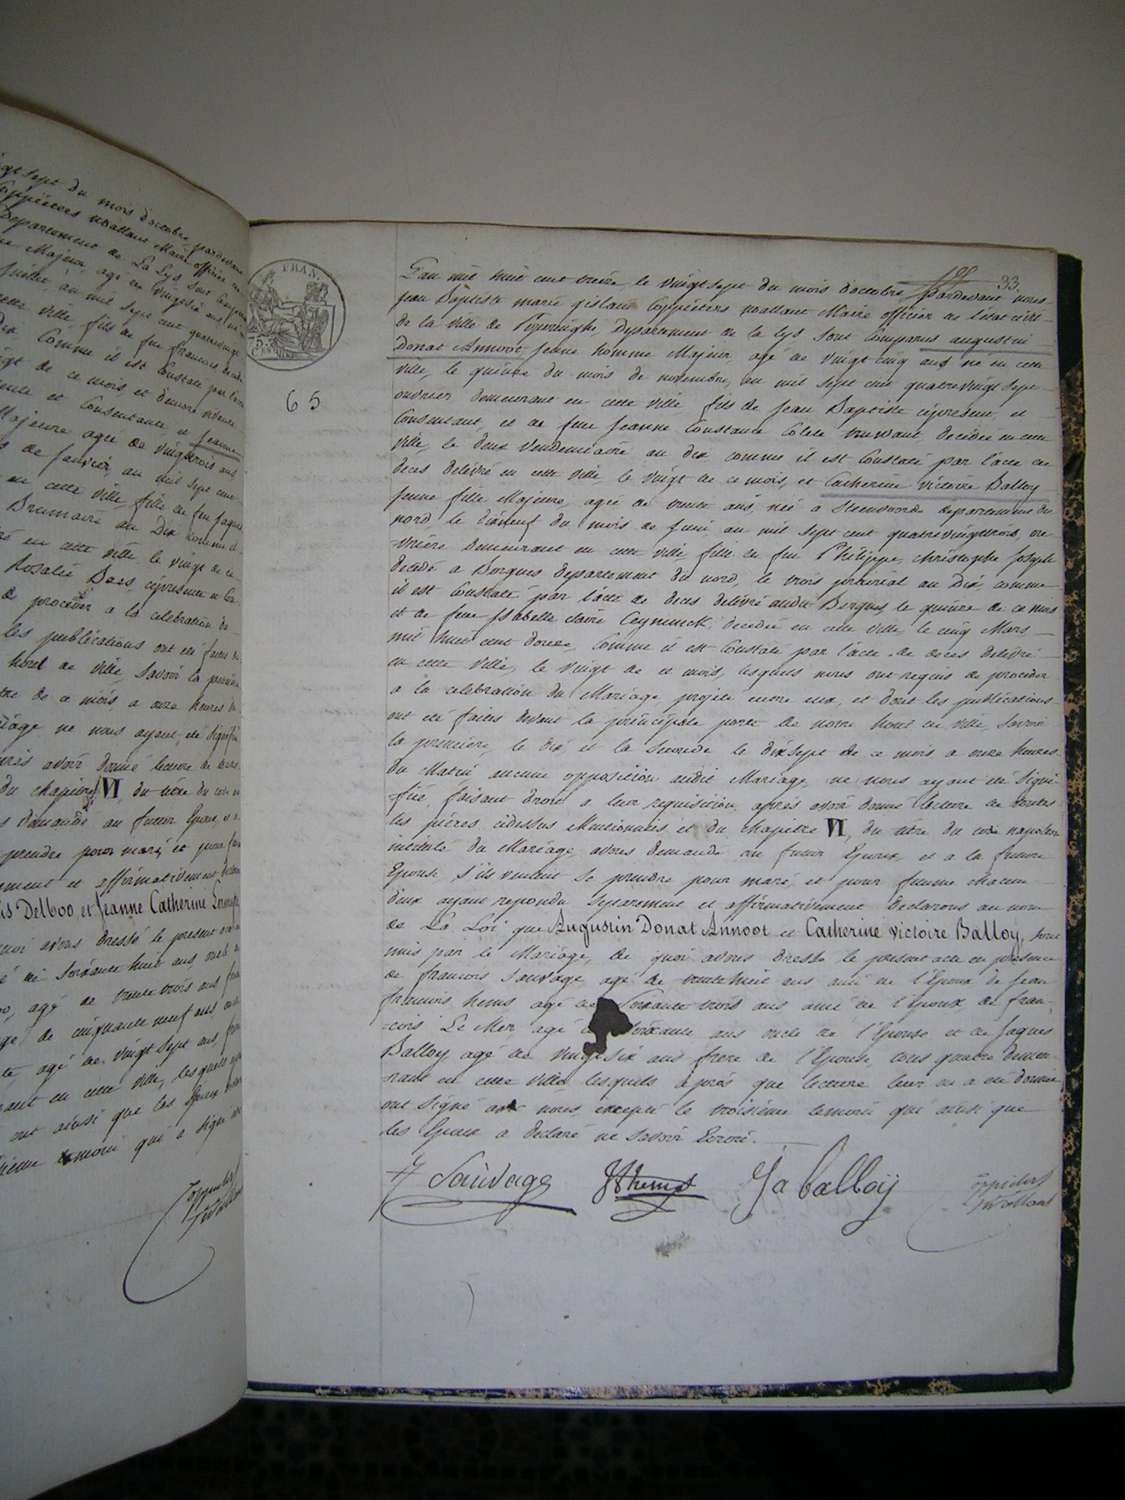 sept du mois d'octobre pardevant
Coppieters Wallant Maire officier
Departement de La Lys Sont Comparus
Majeur agé de vingtsix ans
ville, fils de feu francois
Comme il est Constaté par l'acte
de ce mois, et demeure
et Consentante et Jeanne
Majeure agée de vingttrois ans
de Janvier, au mil sept cent
en cette ville, fille de feu Jaques
Brumaire an Dix comme il
en cette ville le vingt de ce
Rosalie Baes, ciprésente et
de proceder a la celebration de
les publications ont été faites
hotel de ville, Savoir la premiere
de ce mois a onze heures
ne nous ayant été Signifiée
avoir donné lecture de
du chapitre VI, du titre du code
demandé au futur Epoux, et a
prendre pour mari, et pour femme
et affirmativement
is Delboo et Jeanne Catherine
avons dressé le present
de Soixante huit ans, oncle
agé de trente trois ans
de cinquante neuf ans
agé de vingt Sept ans,
en cette ville, lesquels
ont ainsi que les Epoux
temoin qui a Signé
Coppieters
Wallant
FRAN
33.
65
L'an mil huit cent treize, le vingtsept du mois d'octobre, Pardevant nous
jean Baptiste marie gislain Coppieters wallant Maire officier de l'état civil
de la ville de Poperinghe, Departement de la Lys Sont Comparus augustin
Donat Annoot jeune homme Majeur agé de vingt cinq ans né en cette
ville, le quinze du mois de novembre, au mil sept cent quatrevingt sept
ouvrier demeurant en cette ville fils de Jean Baptiste ciprésent, et
Consentant, et de feue Jeanne Constance Colete decédée en cette
ville, le deux Vendemiaire an dix comme il est Constaté par l'acte de
deces delivré en cette ville le vingt de ce mois, et Catherine Victoire Balloy
jeune fille Majeure, agée de trente ans, née a Steenvorde departement du
nord, le dixneuf du mois de juin au mil sept cent quatrevingttrois, ou-
vriere demeurant en cette ville fille de feu Philippe, christophe joseph
decédé a Bergues departement du nord, le trois prairial an Dix, comme
il est Constaté par l'acte de deces delivré audit Bergues le quinze de ce mois
et de feue Isabelle claire Ceyninck, decédée en cette ville, le cinq Mars
mil huit cent douze, Comme il est Constaté par l'acte de deces delivré
en cette ville, le vingt de ce mois, lesquels nous ont requis de proceder
a la celebration du Mariage projeté entre eux, et dont les publications
ont été faites devant la principale porte de notre hotel de ville, Savoir
la premiere, le dix et la Seconde le dixsept de ce mois a onze heures
du Matin aucune opposition audit Mariage, ne nous ayant été Signi-
fiée, faisant droit a leur requisition, après avoir donné lecture de toutes
les pièces cidessus Mentionnées et du chapitre VI, du titre du code napoleon
intitulé du Mariage, avons demandé au futur Epoux, et a la future
Epouse S'ils veulent se prendre pour mari, et pour femme chacun
d'eux ayant repondu Separement et affirmativement declarons au nom
de La Loi, que Augustin Donat Annoot et Catherine Victoire Balloy, Sont
unis par le Mariage, de quoi avons dressé le present acte en presence
de francois Sauvage agé de trentehuit ans ami de l'Epoux de jean
francois hems agé de Soixante trois ans ami de l'Epoux, de fran-
cois Le Mer agé de Soixante ans oncle de l'Epouse et de Jaques
Balloy, agé de vingtsix ans frere de l'Epouse, tous quatre demeu-
rant en cette ville lesquels après que lecture leur en a été donnée
ont Signé avec nous, excepté le troisieme temoin qui ainsi que
les Epoux a declaré ne savoir Ecrire.
f Sauvage
hems
Ja balloij
Coppieters
Wallant